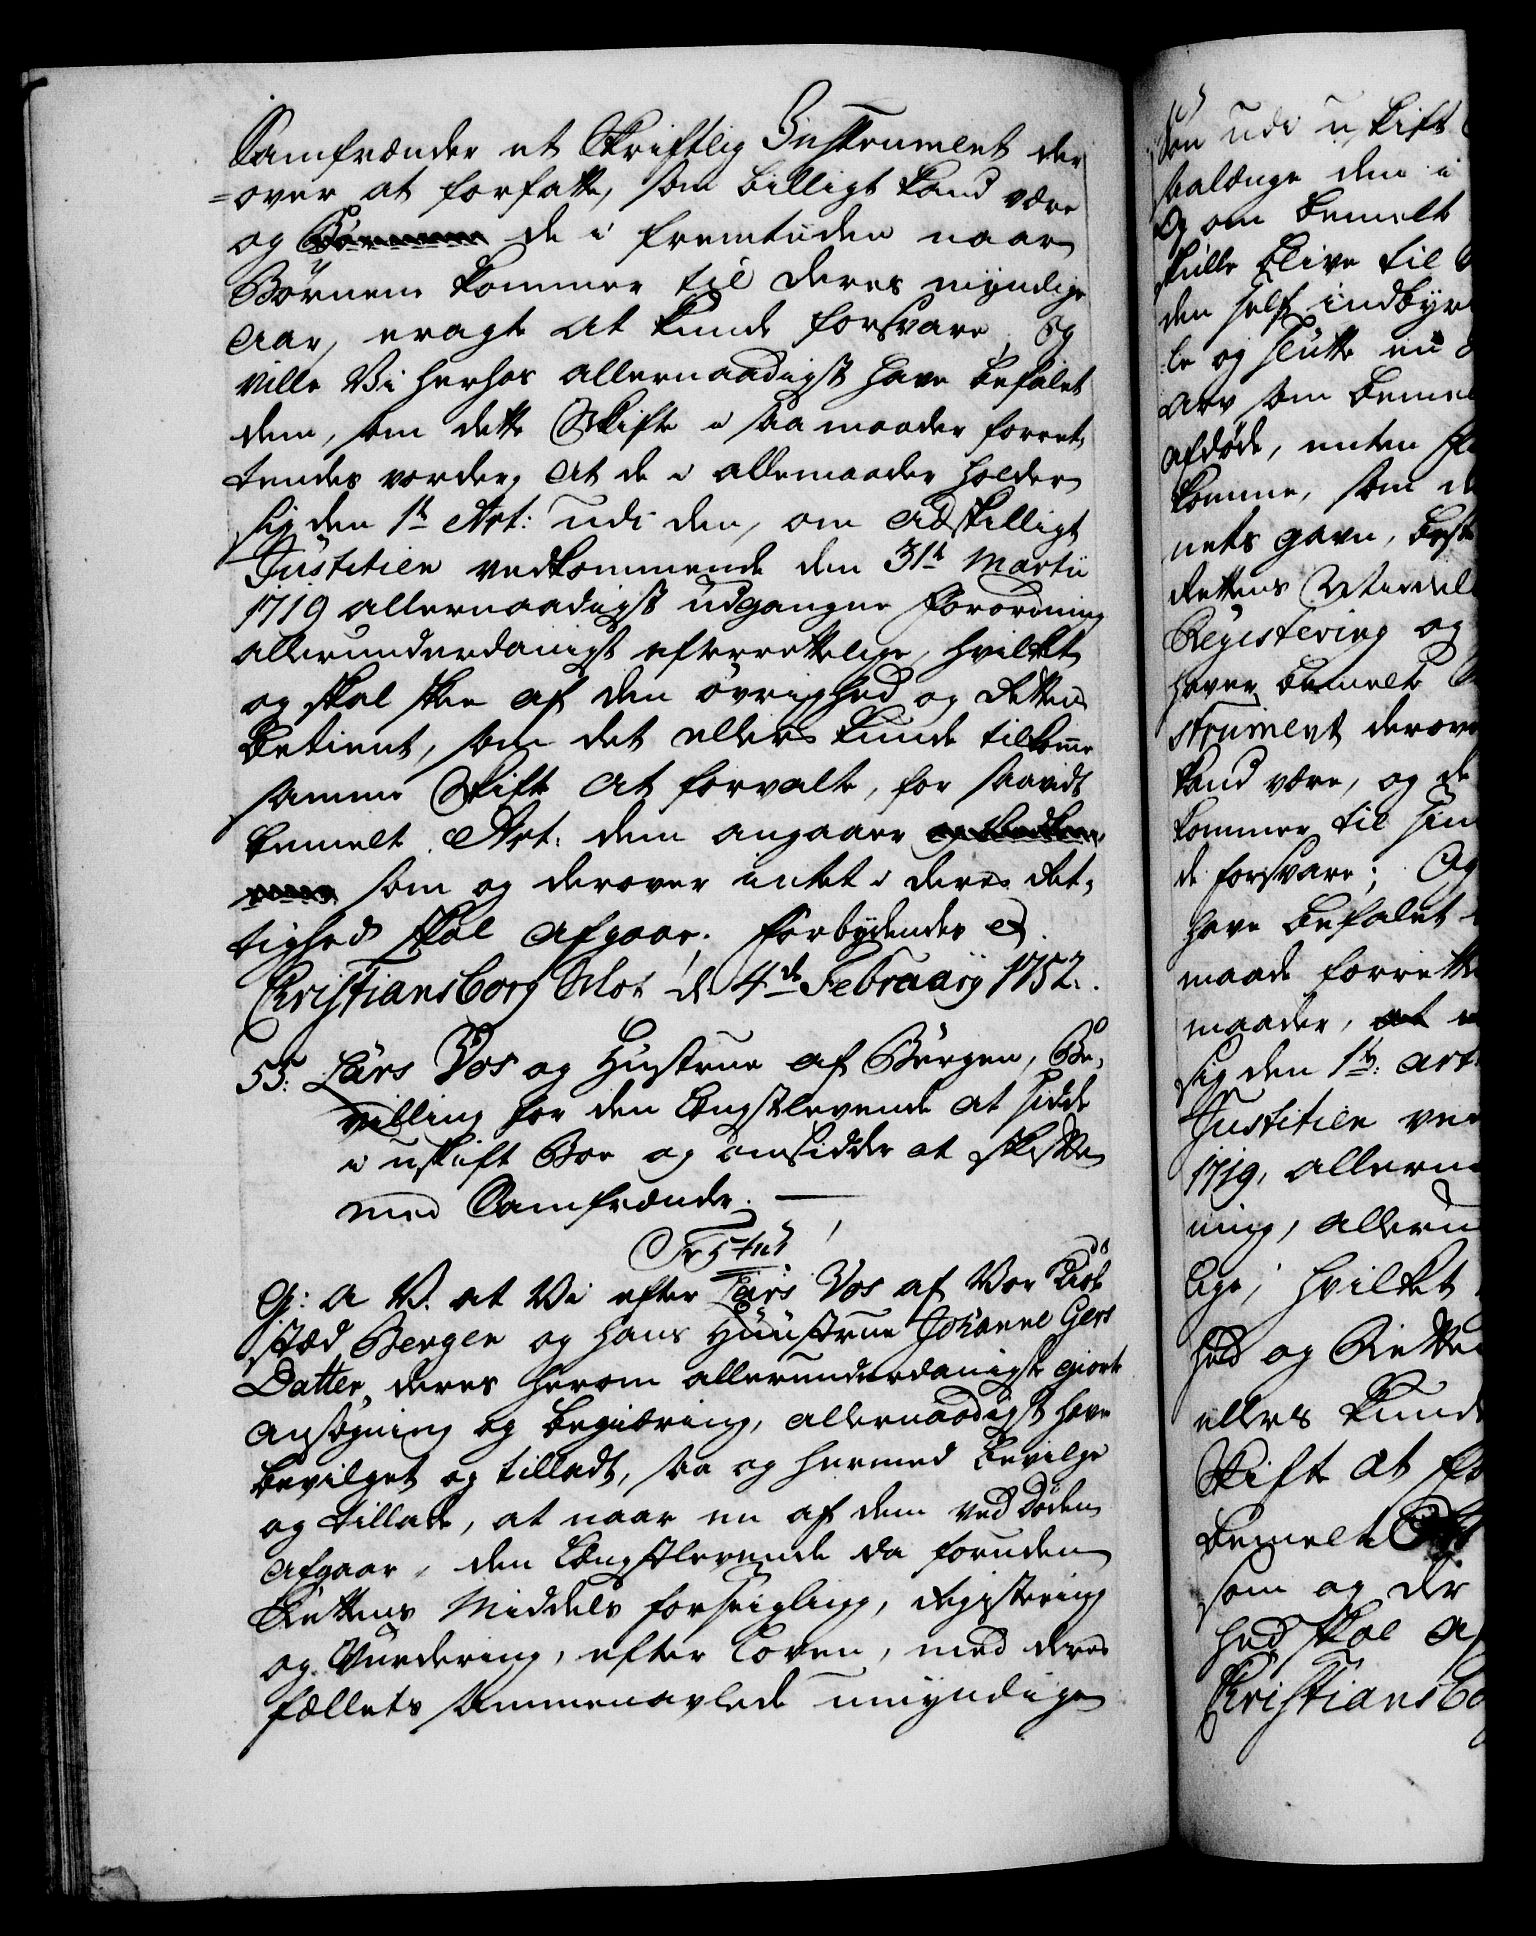 Samfrænder et Skriftlig Instrument der
=over at forfatte, som billigt kand være
og Børnene de i fremtiiden naar
Børnene kommer til deres myndige
Aar, eragte at kunde forsvare. Og
ville Vi herhos allernaadigst have befalet
dem, som dette Skifte i saa maader forret,
tendes vorder, at de i allemaader holder
sig den 1te Art: udi den, om adskilligt
Justitien vedkommende den 31te Martii
1719 allernaadigst udgangne Forordning
allerunderdanigst efterrettelige, hvilket
og skal skee af den øvrighed og Rettens
betient, som det ellers kunde tilkomme
samme Skifte at forvalte, for saavidt
bemelt Art: dem angaaer
som og derover intet i deres Ret,
tighed skal afgaae. Forbydendes &.
Christiansborg Slot d. 4de Februarij 1752.
55: Lars Vos og Hustrue af Bergen, Be,
villing for den Længstlevende at sidde
i uskift Boe og omsider at skifte
med Samfrænder. —
Fr: 5tus
G: A V. at Vi efter Lars Vos af Vor Kiøb
stæd Bergen og hans Huustrue Johanne Gers
Datter, deres herom allerunderdanigst giorte
Ansøgning og begiæring, allernaadigst have
bevilget og tilladt, saa og hermed bevilge
og tillade, at naar en af dem ved Døden
afgaar, den Længstlevende da foruden
Rettens Middels forseigling, Registering
og Vurdering, efter Loven, med deres
fælleds sammenavlede umyndige
den udi uskift
saalænge dem i
Og om bemelt
skulle blive til
den self indbyr
le og slutte en
Arv som bemel
afdøde, enten
komme, som
nets gavn,
Rettens Middel
Registering og
haver bemelt
strument derove
kand være, og de
kommer til sin
de forsvare; Og
have befalet
maade forrette
maader, at
sig den 1te: Art
Justitien ved
1719, allerna
ning, allerun
lige, hvilket
hed og Rette
ellers kunde
Skifte at fo
bemelt
som og der
hed skal af
Christiansbo